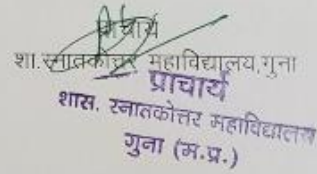 प्राचार्य
शा.स्नातकोत्तर महाविद्यालय,गुना
प्राचार्य
शास. स्नातकोत्तर महाविद्यालय
गुना (म.प्र.)